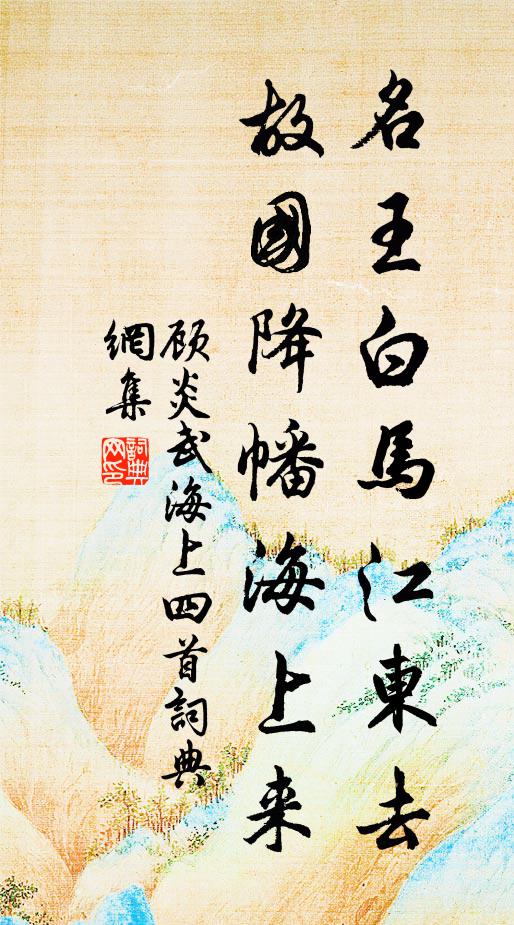 名王白馬江東去
故國降幡海上来
顾炎武海上四首詞典
網集
詞典网印